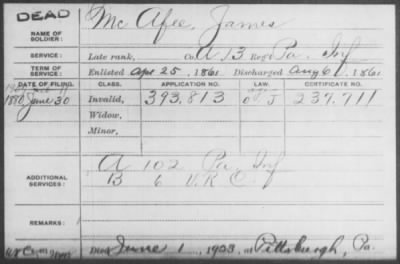 DEAD
NAME OF SOLDIER: Mc Afee, James
SERVICE: Late rank, Co. A 13 Reg't Pa. Inf
TERM OF SERVICE: Enlisted Apr 25, 1861 Discharged Aug 6, 1861
DATE OF FILING. CLASS. APPLICATION NO. LAW. CERTIFICATE NO.
1880 June 30 Invalid, 393.813 237.711
Widow,
Minor,
ADDITIONAL SERVICES: A 102 Pa Inf
B 6 V.R.C.
REMARKS:
Died June 1, 1923, at Pittsburgh, Pa.